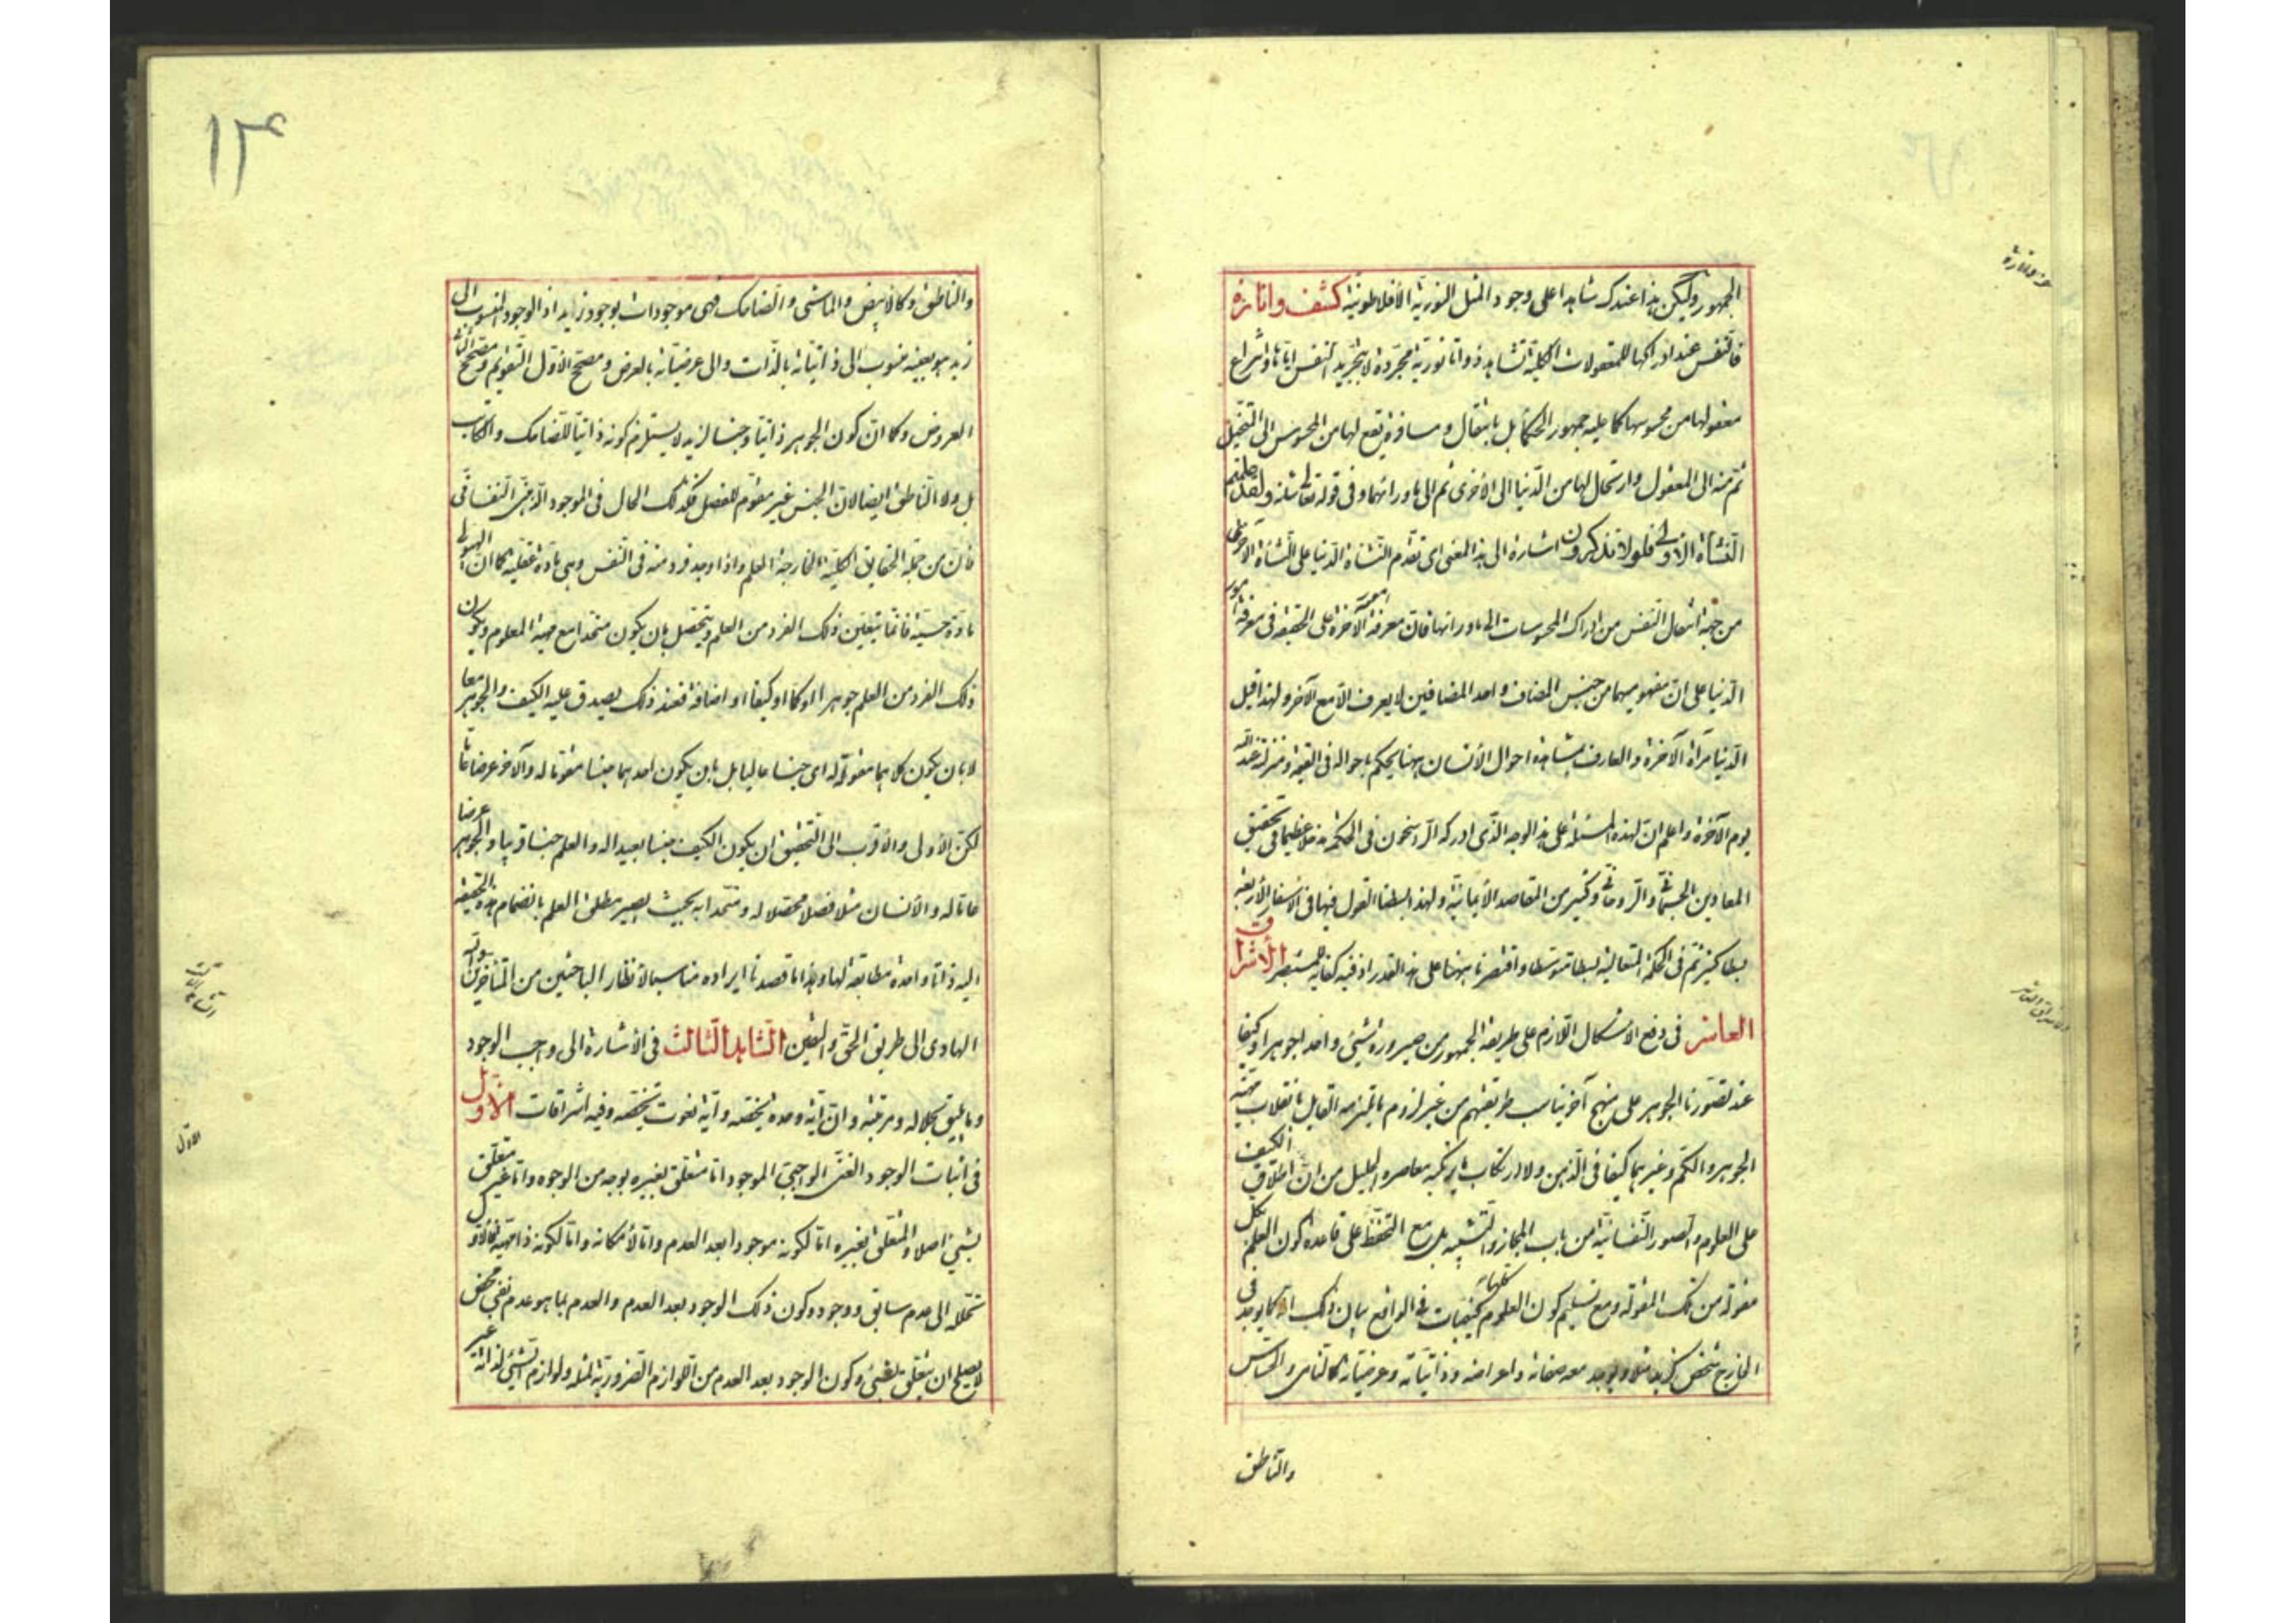 الجمهور وليكن هذا عندك شاهدا على وجود المثل النورية الافلاطونية كشف وانارة
فالنفس عند ادراكها للمعقولات الكلية تشاهد ذوات نورية مجردة لا بتجريد النفس اياها وانتزاع
معقولها من محسوسها كما عليه جمهور الحكماء بل بانتقال ومسافرة يقع لها من المحسوس الى المتخيل
ثم منه الى المعقول وارتحال لها من الدنيا الى الاخرى ثم الى ما ورائهما وفى قوله تعالى شانه ولقد علمتم
النشأة الاولى فلولا تذكرون اشارة الى هذا المعنى اى تقدم النشاة الدنيا على النشاة الاخرى
من جهة انتقال النفس من ادراك المحسوسات الى ما ورائها فان معرفة امور الآخرة على الحقيقة فى معرفة امور
الدنيا على ان مفهوميهما من جنس المضاف واحد المضافين لا يعرف الا مع الآخر ولهذا قيل
الدنيا مرآة الآخرة والعارف بمشاهدة احوال الانسان ههنا يحكم باحواله فى القيمة ومنزلته عند الله
يوم الآخرة واعلم ان لهذه المسئلة على هذا الوجه الذى ادركه الراسخون فى الحكمة مدخلا عظيما فى تحقيق
المعادين الجسمانى والروحانى وكثير من المقاصد الايمانية ولهذا بسطنا القول فيها فى الاسفار الاربعة
بسطا كثيرا ثم فى الحكمة المتعالية بسطا متوسطا واقتصرنا ههنا على هذا القدر اذ فيه كفاية للمستبصر الاشراق
العاشر فى دفع الاشكال اللازم على طريقة الجمهور من صيرورة شيئ واحد جوهرا وكيفا
عند تصورنا الجوهر على منهج آخر يناسب طريقتهم من غير لزوم ما يلتزمه القايل بانقلاب مهية
الجوهر والكم وغيرهما كيفا فى الذهن ولا ارتكاب ما يرتكبه معاصره الجليل من ان اطلاق الكيف
على العلوم والصور النفسانية من باب المجاز والتشبيه بل مع التحفظ على قاعدة كون العلم بكل
مقولة من تلك المقولة ومع تسليم كون العلوم كلها كيفيات فى الواقع بيان ذلك انه كما يوجد فى
الخارج شخص كزيد مثلا ويوجد معه صفاته واعراضه وذاتياته وعرضياته كالنامى والحساس
والناطق
والناطق وكالابيض والماشى والضاحك فهى موجودات بوجود زيد اذ الوجود المنسوب الى
زيد هو بعينه منسوب الى ذاتياته بالذات والى عرضياته بالعرض ومصحح الاول التقويم ومصحح الثانى
العروض وكما ان كون الجوهر ذاتيا وجنسا لزيد لا يستلزم كونه ذاتيا للضاحك والكاتب
بل ولا الناطق ايضا لان الجنس غير مقوم للفصل فكذلك الحال فى الموجود الذهنى النفسانى
فان من جملة الحقايق الكلية الخارجية العلم واذا وجد فرد منه فى النفس وهى مادة عقلية كما ان الهيولى
مادة حسية فانما يتعين ذلك الفرد من العلم ويتحصل بان يكون متحدا مع مهية المعلوم ويكون
ذلك الفرد من العلم جوهرا او كما او كيفا او اضافة فعند ذلك يصدق عليه الكيف والجوهر معا
لا بان يكون كلاهما مقولة له اى جنسا عاليا بل بان يكون احدهما جنسا مقوما له والآخر عرضا عاما
لكن الاولى والاقرب الى التحقيق ان يكون الكيف جنسا بعيدا له والعلم جنسا قريبا والجوهر عرضا
عاما له والانسان مثلا فصلا محصلا له ومتحدا به بحيث يصير مطلق العلم بانضمام هذه الحقيقة
اليه ذاتا واحدة مطابقة لها وهذا ما قصدنا ايراده مناسبا لانظار الباحثين من المتأخرين والله
الهادى الى طريق الحق واليقين الشاهد الثالث فى الاشارة الى واجب الوجود
وما يليق بجلاله ومرتبته وان اية وحدة يخصه واية نعوت يخصه وفيه اشراقات الاول
فى اثبات الوجود الغنى الواجبى الموجود اما متعلق بغيره بوجه من الوجوه واما غير متعلق
بشيئ اصلا والمتعلق بغيره اما لكونه موجودا بعد العدم واما لامكانه واما لكونه ذا مهية فالاول
نحلله الى عدم سابق ووجود وكون ذلك الوجود بعد العدم والعدم بما هو عدم نفى محض
لا يصلح ان يتعلق بشيئ وكون الوجود بعد العدم من اللوازم الضرورية لمثله ولوازم الشيئ لذاته غير
كشف وانارة
الاشراق العاشر
الشاهد الثالث
الاول